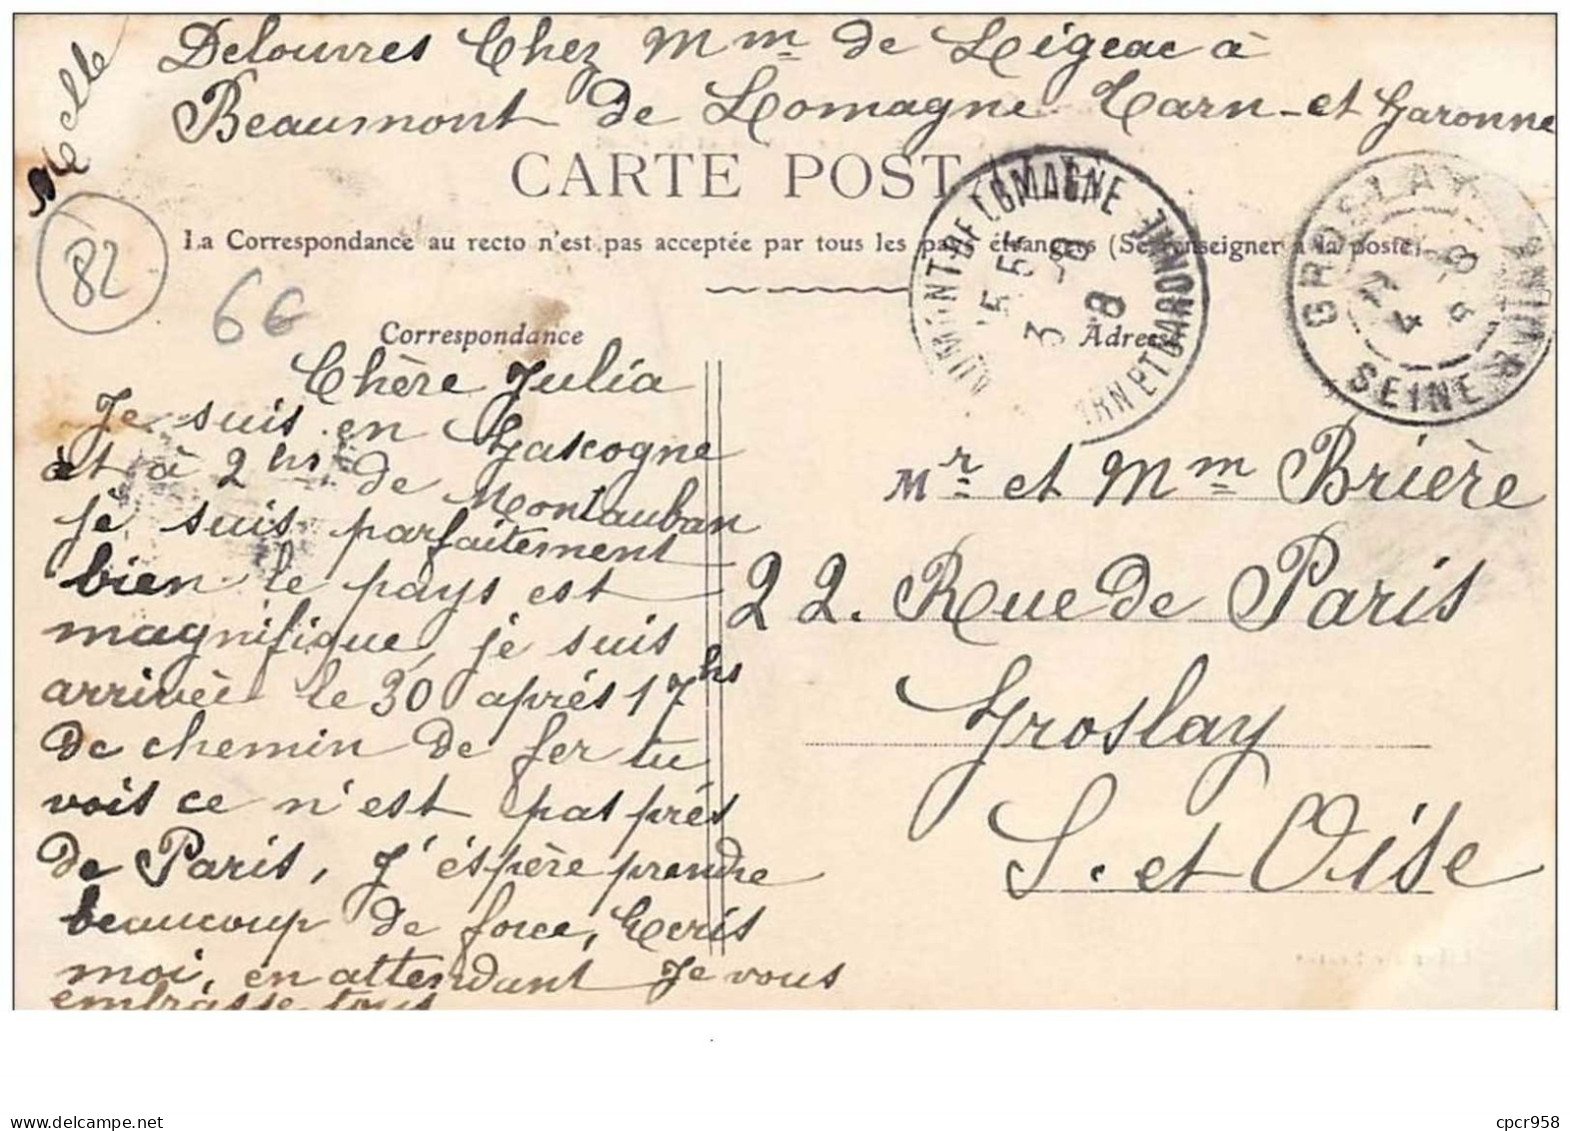 Melle
Delouvres Chez Mme de Ligeac à
Beaumont de Lomagne Tarn-et Garonne
CARTE POST
La Correspondance au recto n'est pas acceptée par tous les pays étrangers (Se renseigner à la poste)
82
6€
LOMAGNE
5 55
3 -8
8
GROSLAY
4 8
SEINE
Correspondance
Adresse
Chère Julia
Je suis en Gascogne
et à 2hs de Montauban
je suis parfaitement
bien le pays est
magnifique, je suis
arrivée le 30 aprés 17hs
de chemin de fer tu
vois ce n'est pas prés
de Paris, J'éspère prendre
beaucoup de force, Ecris
moi, en attendant Je vous
embrasse tous
Mr et Mme Brière
22. Rue de Paris
Groslay
S. et Oise
delcampe.net
cpcr958